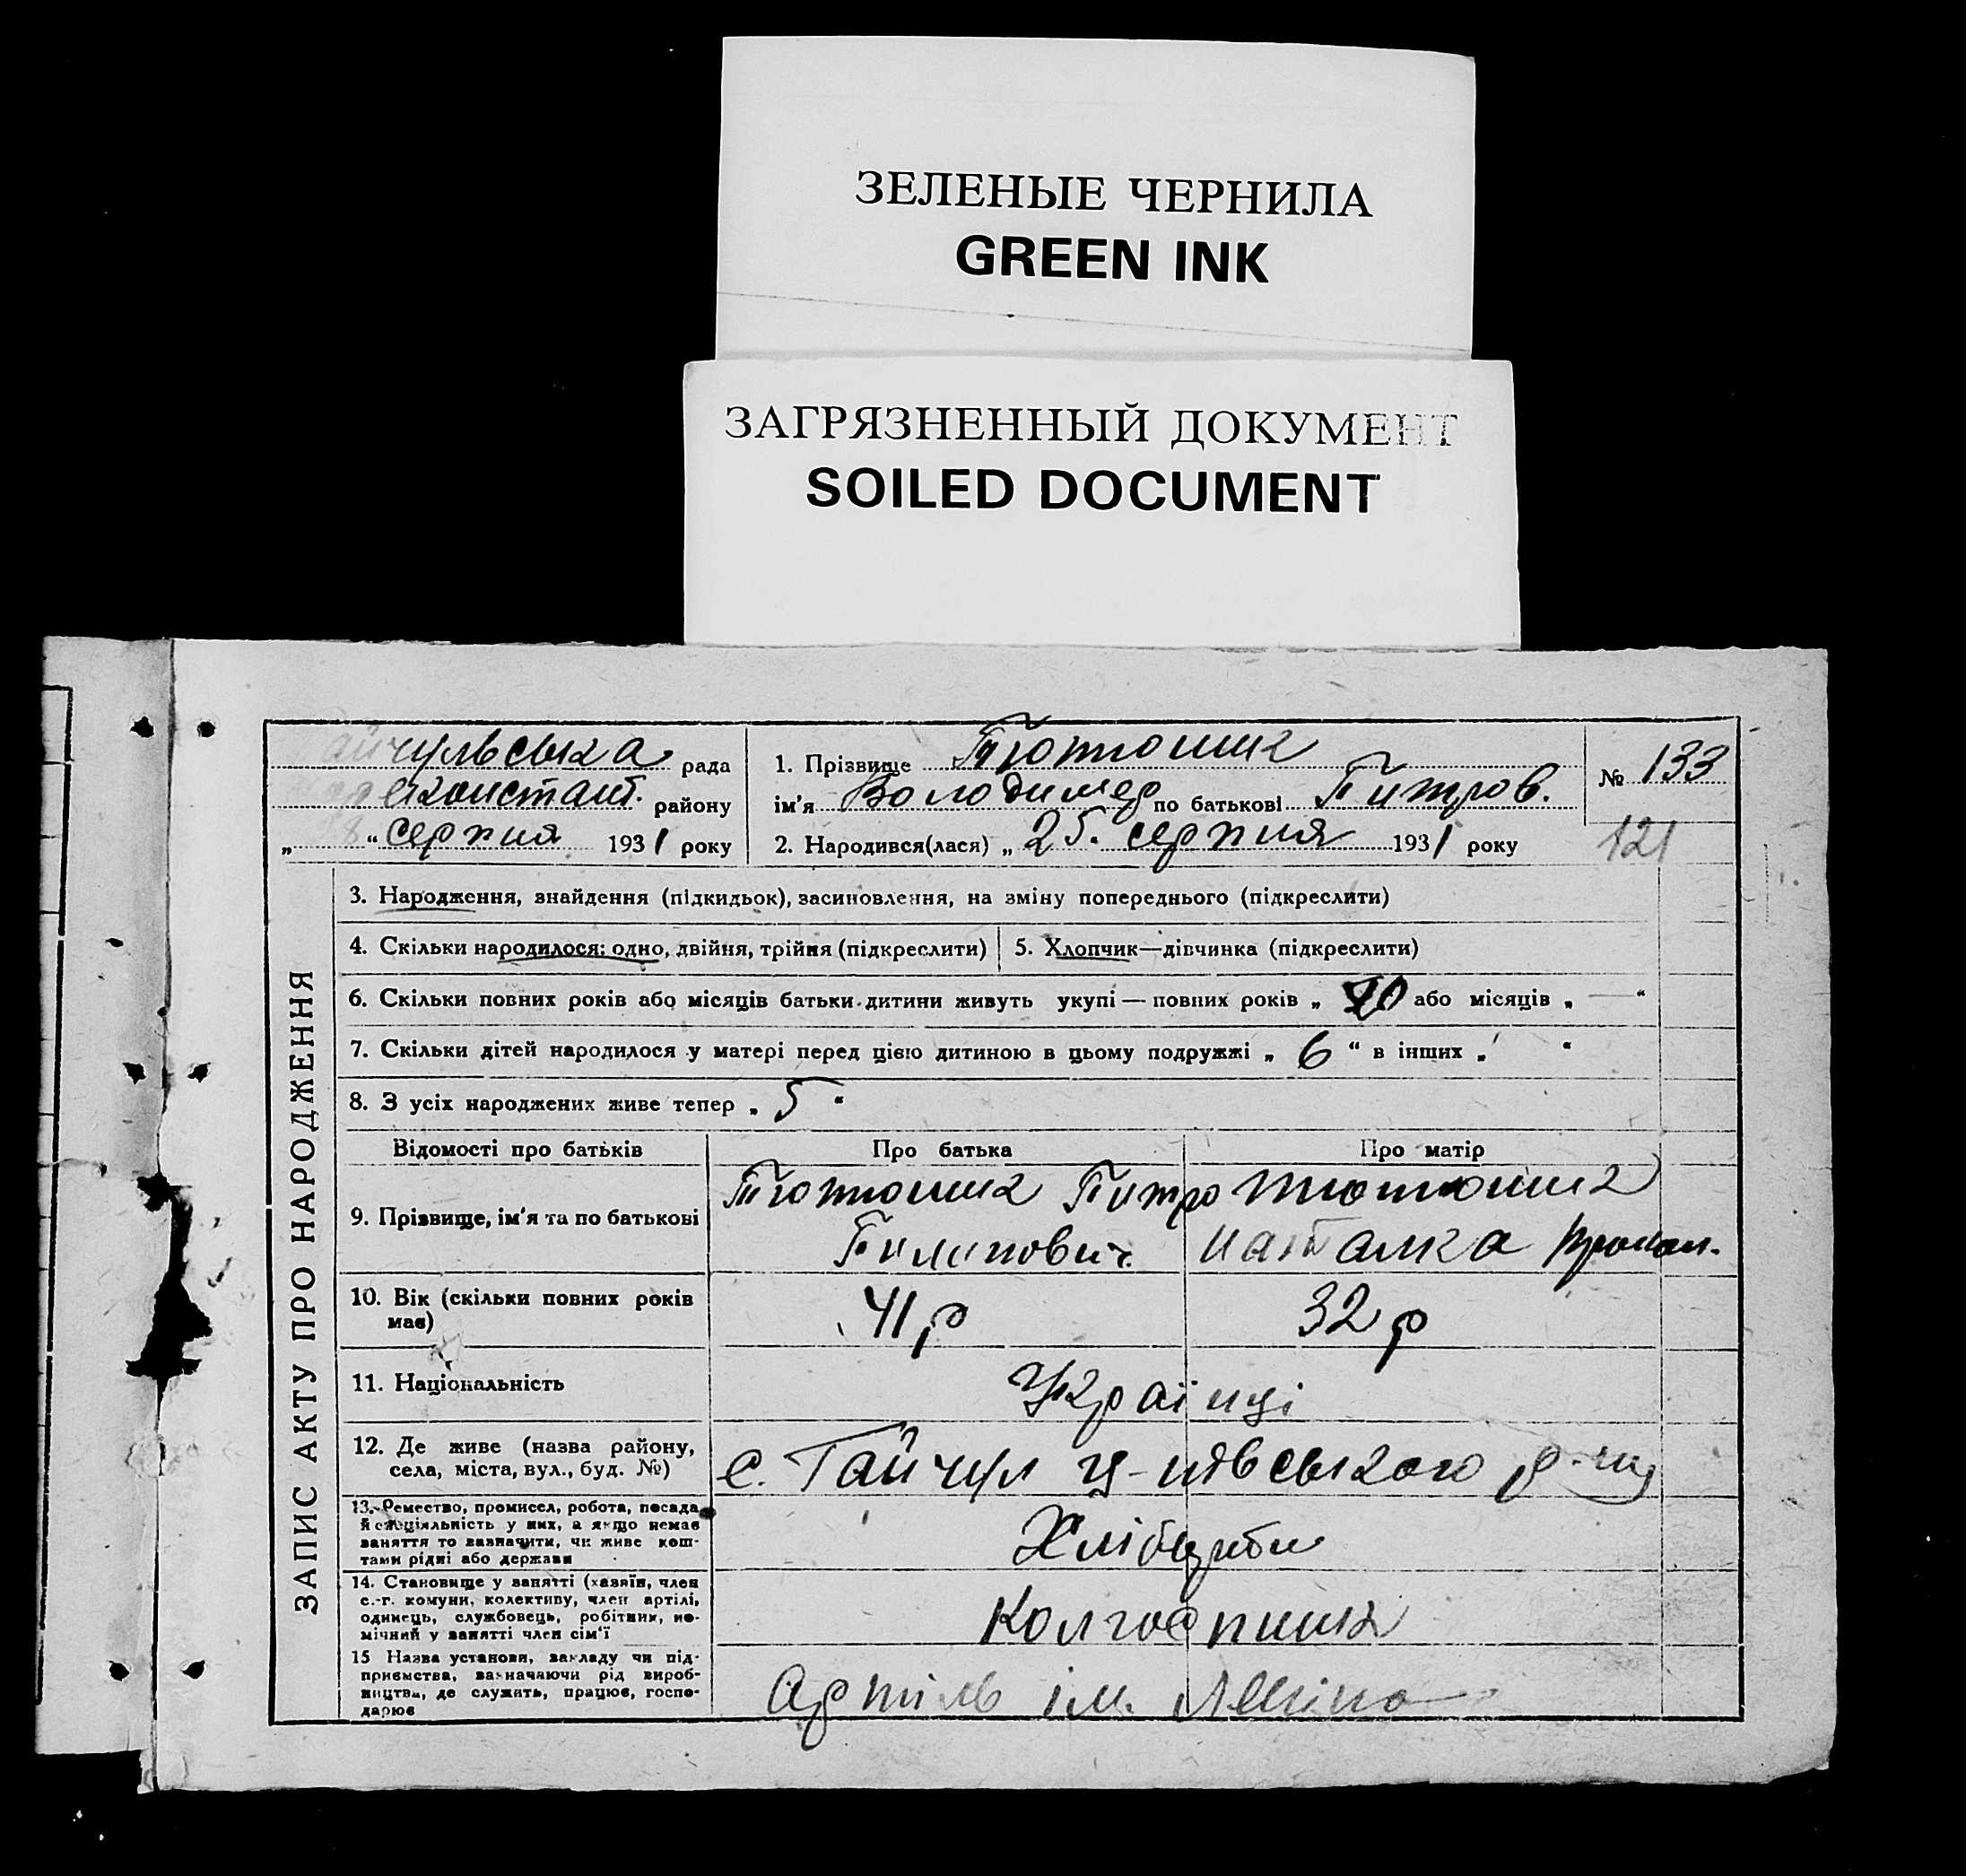 ЗЕЛЕНЫЕ ЧЕРНИЛА
GREEN INK
ЗАГРЯЗНЕННЫЙ ДОКУМЕНТ
SOILED DOCUMENT
айчульська рада
констант. району
„ “ серпня 1931 року
1. Прізвище Тютюник
ім'я Володимер по батькові Питров.
2. Народився(лася) „ 25. серпня 1931 року
№ 133
121
ЗАПИС АКТУ ПРО НАРОДЖЕННЯ
3. Народження, знайдення (підкидьок), засиновлення, на зміну попереднього (підкреслити)
4. Скільки народилося: одно, двійня, трійня (підкреслити)
5. Хлопчик—дівчинка (підкреслити)
6. Скільки повних років або місяців батьки дитини живуть укупі — повних років „ або місяців „ — “
7. Скільки дітей народилося у матері перед цією дитиною в цьому подружжі „ 6 “ в інших „ “
8. З усіх народжених живе тепер „ 5 “
Відомості про батьків
Про батька
Про матір
9. Прізвище, ім'я та по батькові
Тютюник Питро
Пилипович
Тютюник
Наталка
10. Вік (скільки повних років
має)
41 р
32 р
11. Національність
Українці
12. Де живе (назва району,
села, міста, вул., буд. №)
с. Гайчул
13. Ремество, промисел, робота, посада
й спеціяльність у них, а якщо немає
заняття то зазначити, чи живе кош-
тами рідні або держави
Хлібороби
14. Становище у занятті (хазяїн, член
с.-г. комуни, колективу, член артілі,
одинець, службовець, робітник, по-
мічний у занятті член сім'ї
Колгоспник
15 Назва установи, закладу чи під-
приємства, зазначаючи рід вироб-
ництва, де служить, працює, госпо-
дарює
Артіль ім. Леніна